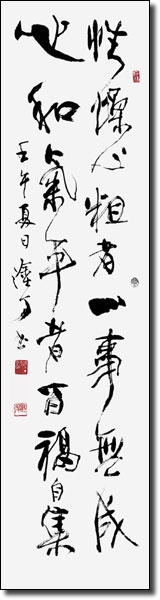 性燥心粗者一事無成
心和氣平者百福自集
壬午夏日